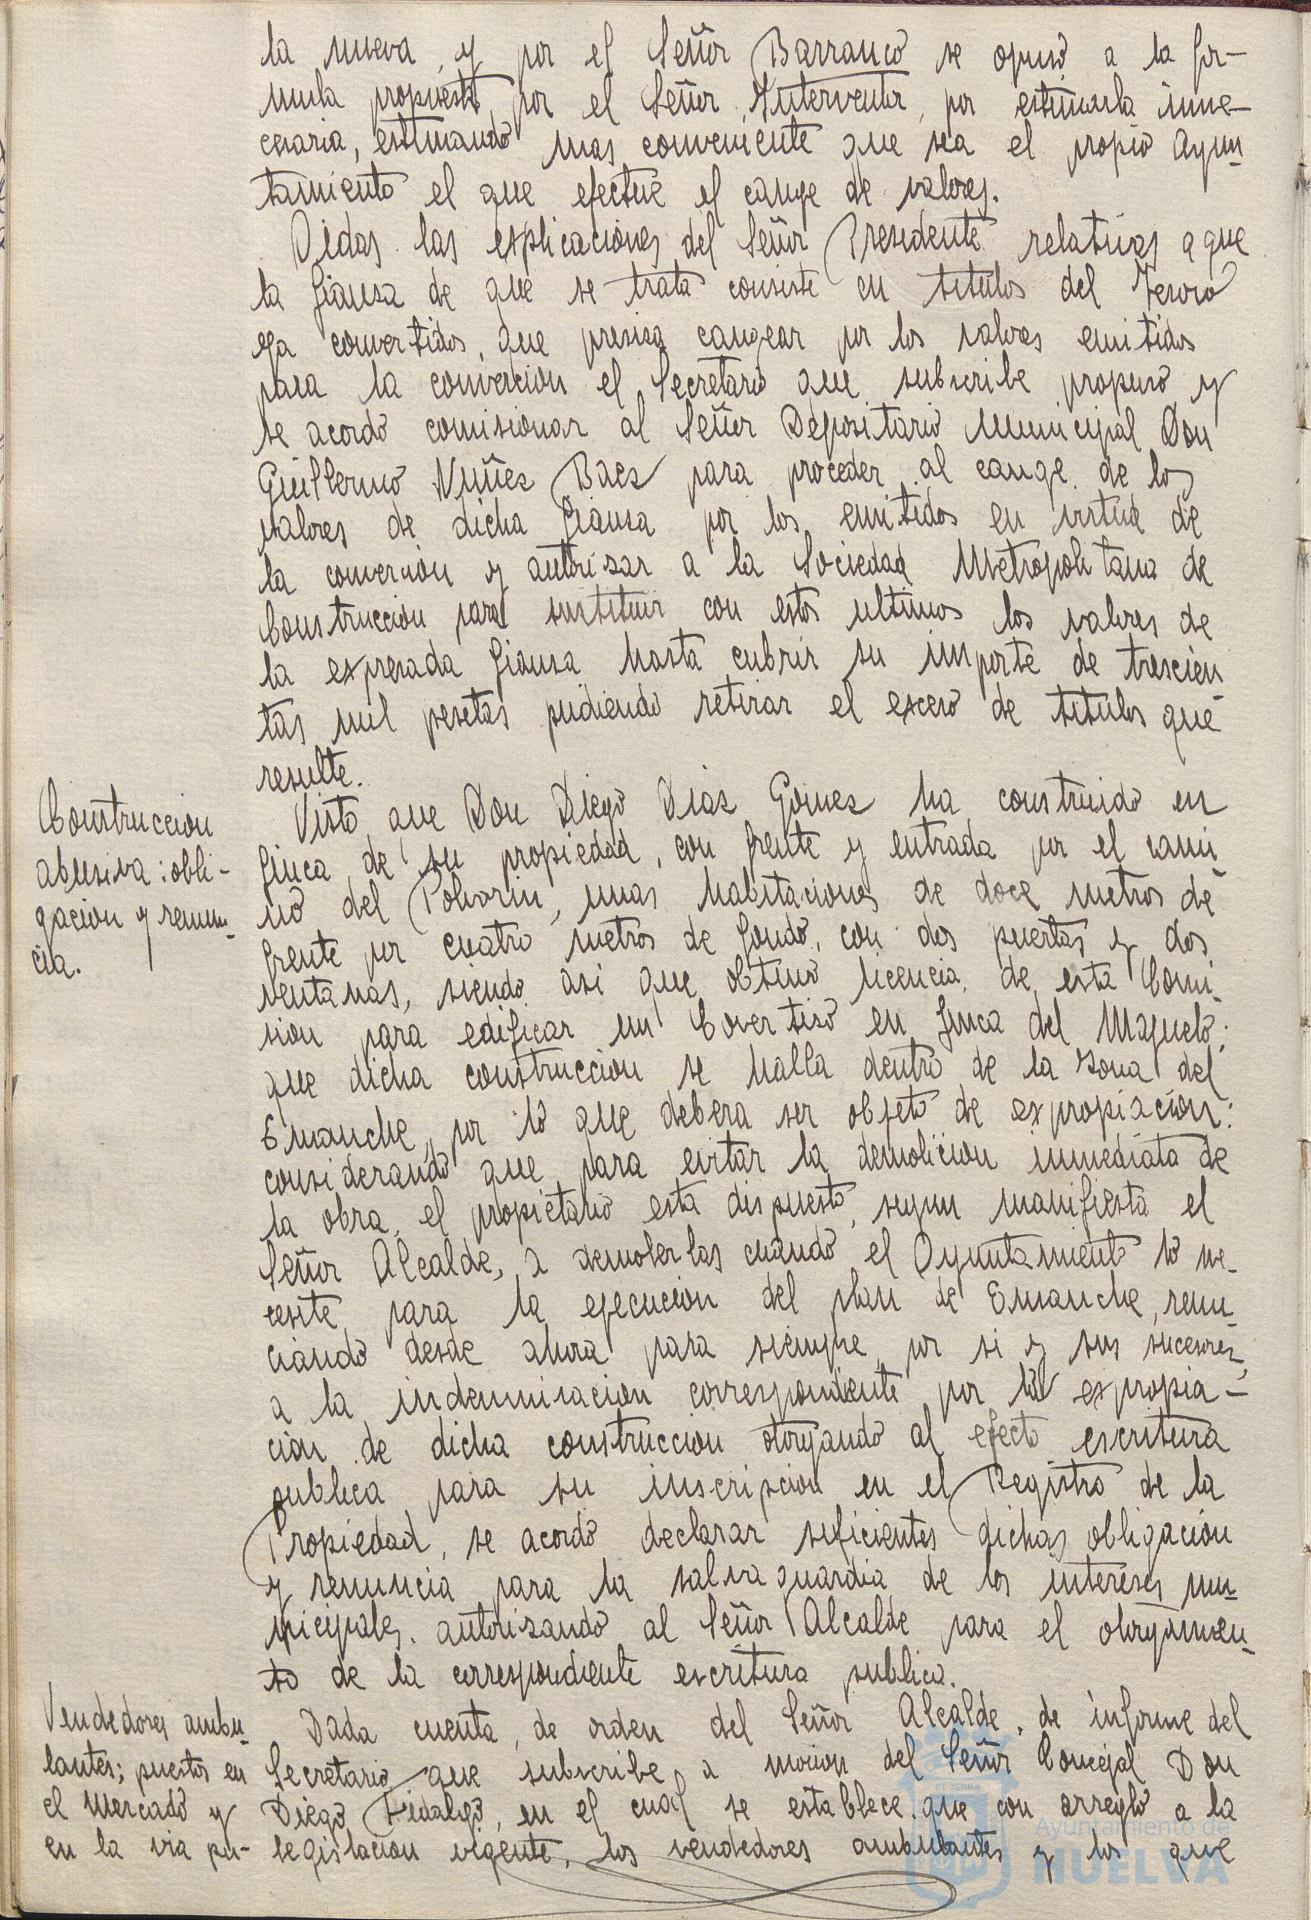 la nueva, y por el Señor Barranco se opuso a la for-
mula propuesta por el Señor Interventor, por estimarla inne-
cesaria, estimando mas conveniente que sea el propio Ayun-
tamiento el que efectue el cange de valores.
Oidas las explicaciones del Señor Presidente relativas a que
la fianza de que se trata consiste en titulos del Tesoro
ya convertidos, que presisa cangear por los valores emitidos
para la conversion el Secretario que subscribe propuso y
se acordó comisionar al Señor Depositario Municipal Don
Guillermo Nuñez Baez para proceder al cange de los
valores de dicha fianza por los emitidos en virtud de
la conversion y autorizar a la Sociedad Metropolitana de
Construccion para sustituir con estos ultimos los valores de
la expresada fianza hasta cubrir su importe de trescien-
tas mil pesetas pudiendo retirar el exceso de titulos que
resulte.
Construccion
abusiva: obli-
gacion y renun-
cia.
Visto que Don Diego Dias Gomez ha construido en
finca de su propiedad, con frente y entrada por el cami-
no del Polvorin, unas habitaciones de doce metros de
frente por cuatro metros de fondo, con dos puertas y dos
ventanas, siendo asi que obtuvo licencia de esta Comi-
sion para edificar un Covertiso en finca del Majuelo;
que dicha construccion se halla dentro de la Zona del
Ensanche, por lo que debera ser objeto de expropiacion:
considerando que para evitar la demolicion inmediata de
la obra, el propietario esta dispuesto, segun manifiesta el
Señor Alcalde, a demolerlas cuando el Ayuntamiento lo ne-
cesite para la ejecucion del plan de Ensanche, renun-
ciando desde ahora para siempre, por si y sus sucesores,
a la indemnizacion correspondiente por la expropia-
cion de dicha construccion otorgando al efecto escritura
publica para su inscripcion en el Registro de la
Propiedad, se acordó declarar suficientes dichas obligacion
y renuncia para la salvaguardia de los intereses mu-
nicipales. autorizando al Señor Alcalde para el otorgamien-
to de la correspondiente escritura publica.
Vendedores ambu-
lantes; puestos en
el Mercado y
en la via pu-
Dada cuenta, de orden del Señor Alcalde, de informe del
Secretario que subscribe, a mocion del Señor Concejal Don
Diego Fidalgo, en el cual se establece que con arreglo a la
legislacion vigente, los vendedores ambulantes y los que
Ayuntamiento de
HUELVA